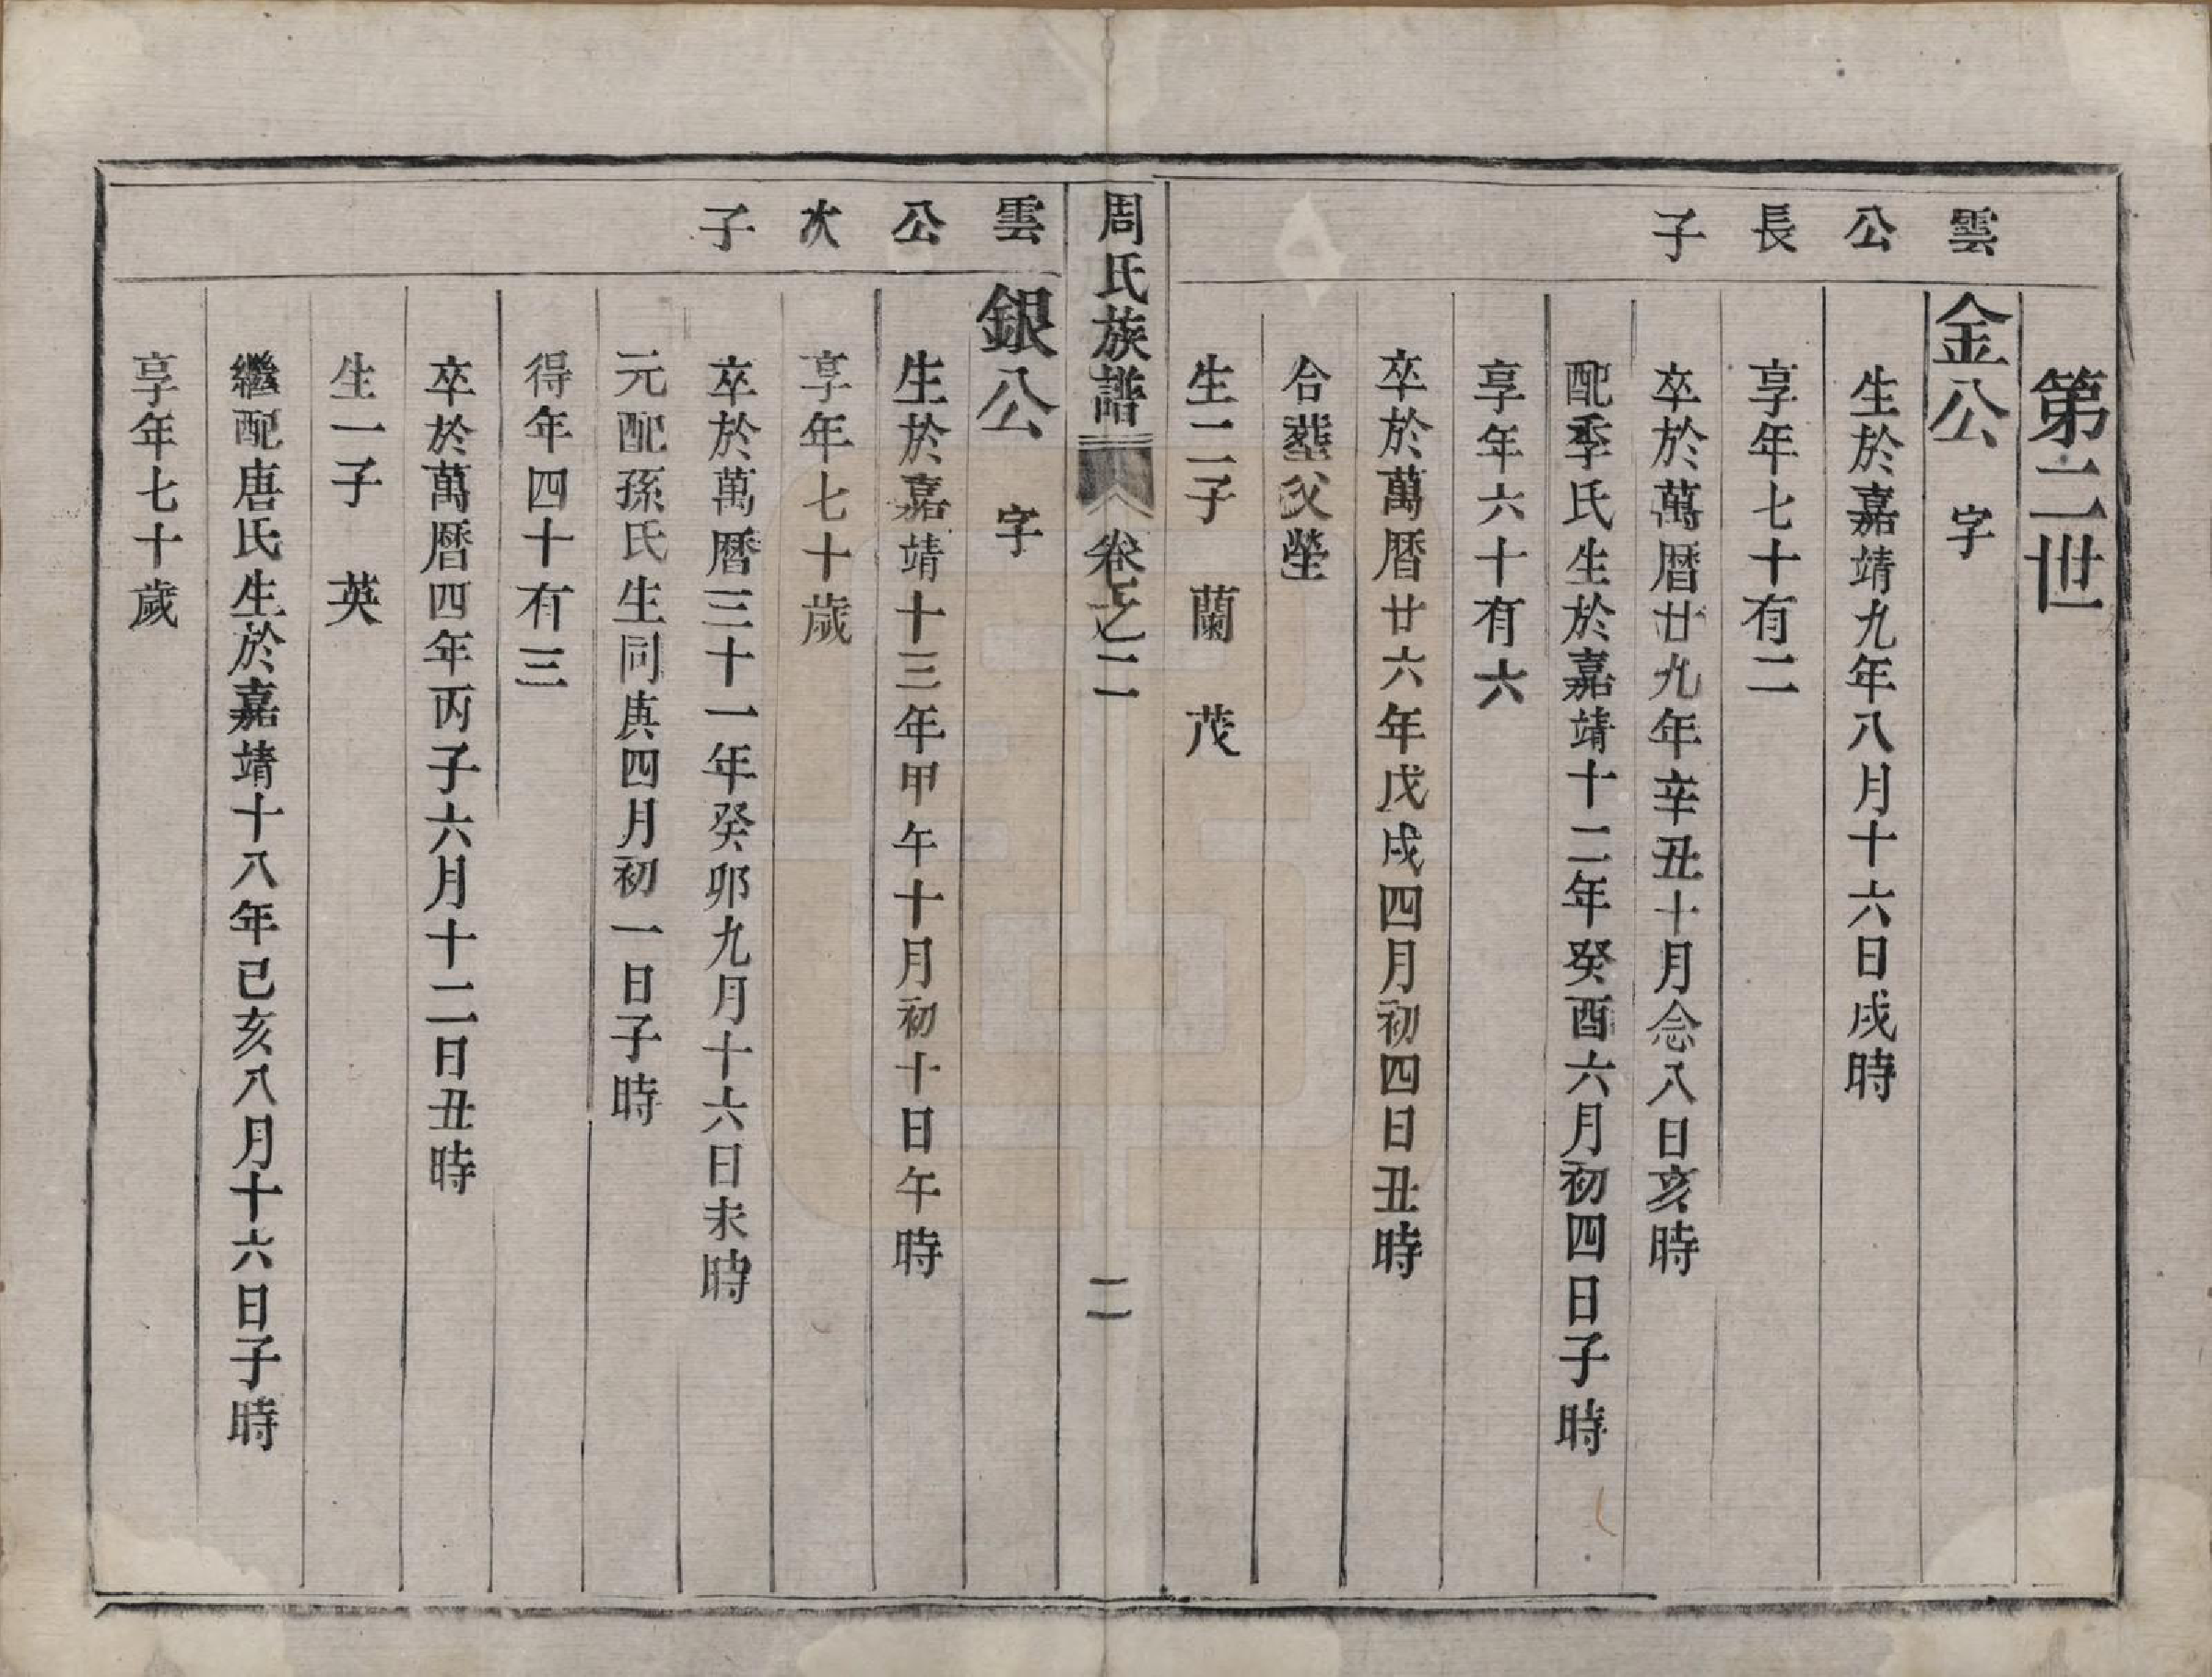 第二世
雲公長子
金公 字
生於嘉靖九年八月十六日戌時
享年七十有二
卒於萬曆廿九年辛丑十月念八日亥時
配季氏生於嘉靖十二年癸酉六月初四日子時
享年六十有六
卒於萬曆廿六年戊戌四月初四日丑時
合塟父塋
生二子 蘭 茂
周氏族譜 卷之二 二
雲公次子
銀公 字
生於嘉靖十三年甲午十月初十日午時
享年七十歲
卒於萬曆三十一年癸卯九月十六日未時
元配孫氏生同庚四月初一日子時
得年四十有三
卒於萬曆四年丙子六月十二日丑時
生一子 英
繼配唐氏生於嘉靖十八年己亥八月十六日子時
享年七十歲